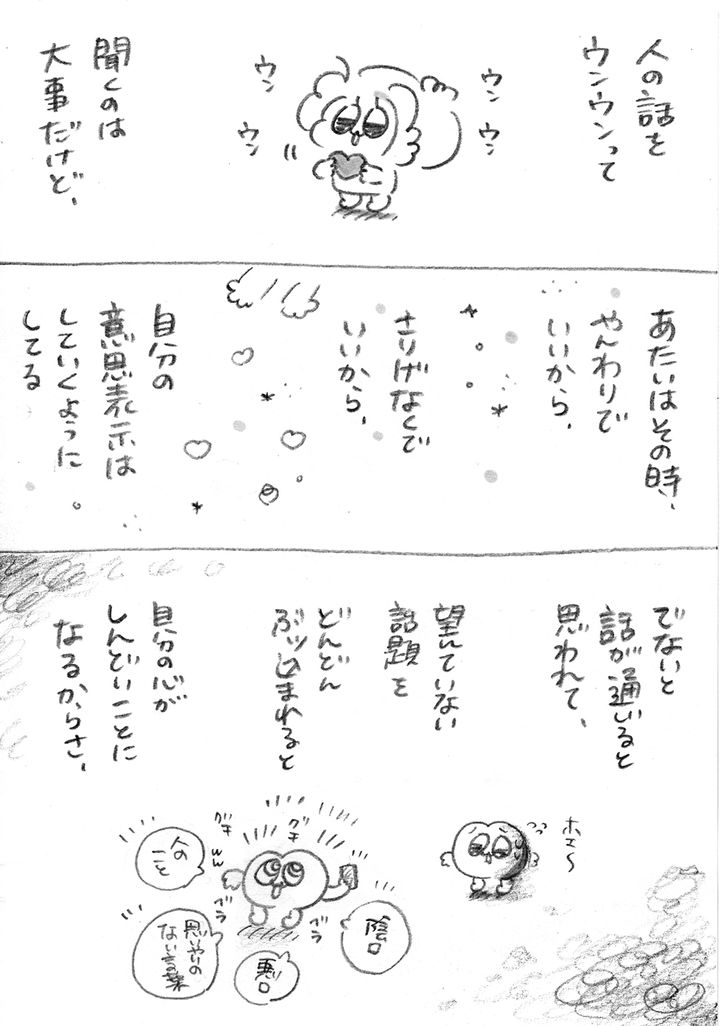 人の話を
ウンウンって
ウン
ウン
ウン
ウン
聞くのは
大事だけど、
あたいはその時、
やんわりで
いいから、
さりげなくで
いいから、
自分の
意思表示は
していくように
してる
でないと
話が通じると
思われて、
望んでいない
話題を
どんどん
ぶッ込まれると
自分の心が
しんどいことに
なるからさ、
ホエ〜
ガチ
ガチ
ww
人の
こと
ベラ
ベラ
陰口
悪口
思いやりの
ない言葉